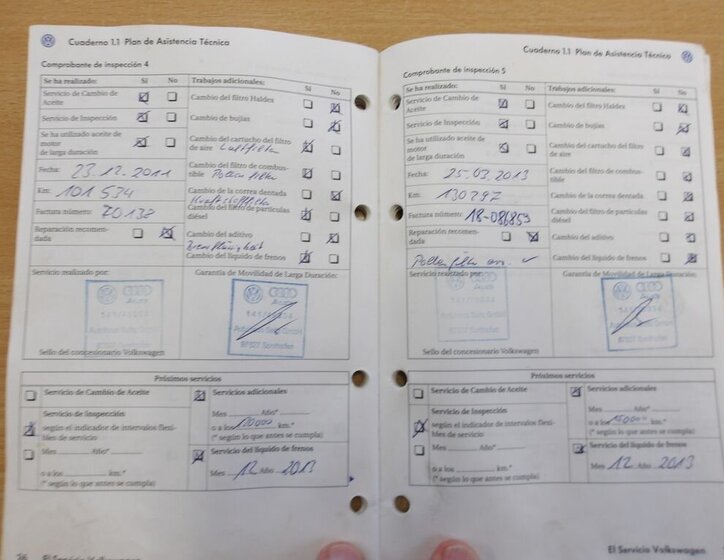 Cuaderno 1.1 Plan de Asistencia Técnica
Comprobante de inspección 4
Se ha realizado: Sí No
Servicio de Cambio de Aceite
Servicio de Inspección
Se ha utilizado aceite de motor de larga duración
Fecha: 23.12.2011
Km: 101 534
Factura número: 70138
Reparación recomendada
Trabajos adicionales: Sí No
Cambio del filtro Haldex
Cambio de bujías
Cambio del cartucho del filtro de aire Luftfilter
Cambio del filtro de combustible Pollenfilter
Cambio de la correa dentada
Kraftstofffilter
Cambio del filtro de partículas diésel
Cambio del aditivo
Bremsflüssigkeit
Cambio del líquido de frenos
Servicio realizado por:
Garantía de Movilidad de Larga Duración:
Audi
87527 Sonthofen
Sello del concesionario Volkswagen
Próximos servicios
Servicio de Cambio de Aceite
Servicio de Inspección
según el indicador de intervalos flexibles de servicio
Mes Año*
o a los km.*
(* según lo que antes se cumpla)
Servicios adicionales
Mes Año*
o a los km.*
(* según lo que antes se cumpla)
Servicio del líquido de frenos
Mes 12 Año 2013
26 El Servicio Volkswagen
Cuaderno 1.1 Plan de Asistencia Técnica
Comprobante de inspección 5
Se ha realizado: Sí No
Servicio de Cambio de Aceite
Servicio de Inspección
Se ha utilizado aceite de motor de larga duración
Fecha: 25.03.2013
Km: 130297
Factura número: 18-086853
Reparación recomendada
Pollenfilter
Trabajos adicionales: Sí No
Cambio del filtro Haldex
Cambio de bujías
Cambio del cartucho del filtro de aire
Cambio del filtro de combustible
Cambio de la correa dentada
Cambio del filtro de partículas diésel
Cambio del aditivo
Cambio del líquido de frenos
Servicio realizado por:
Garantía de Movilidad de Larga Duración:
Audi
87527 Sonthofen
Sello del concesionario Volkswagen
Próximos servicios
Servicio de Cambio de Aceite
Servicio de Inspección
según el indicador de intervalos flexibles de servicio
Mes Año*
o a los km.*
(* según lo que antes se cumpla)
Servicios adicionales
Mes Año*
o a los 150000 km.*
(* según lo que antes se cumpla)
Servicio del líquido de frenos
Mes 12 Año 2013
El Servicio Volkswagen